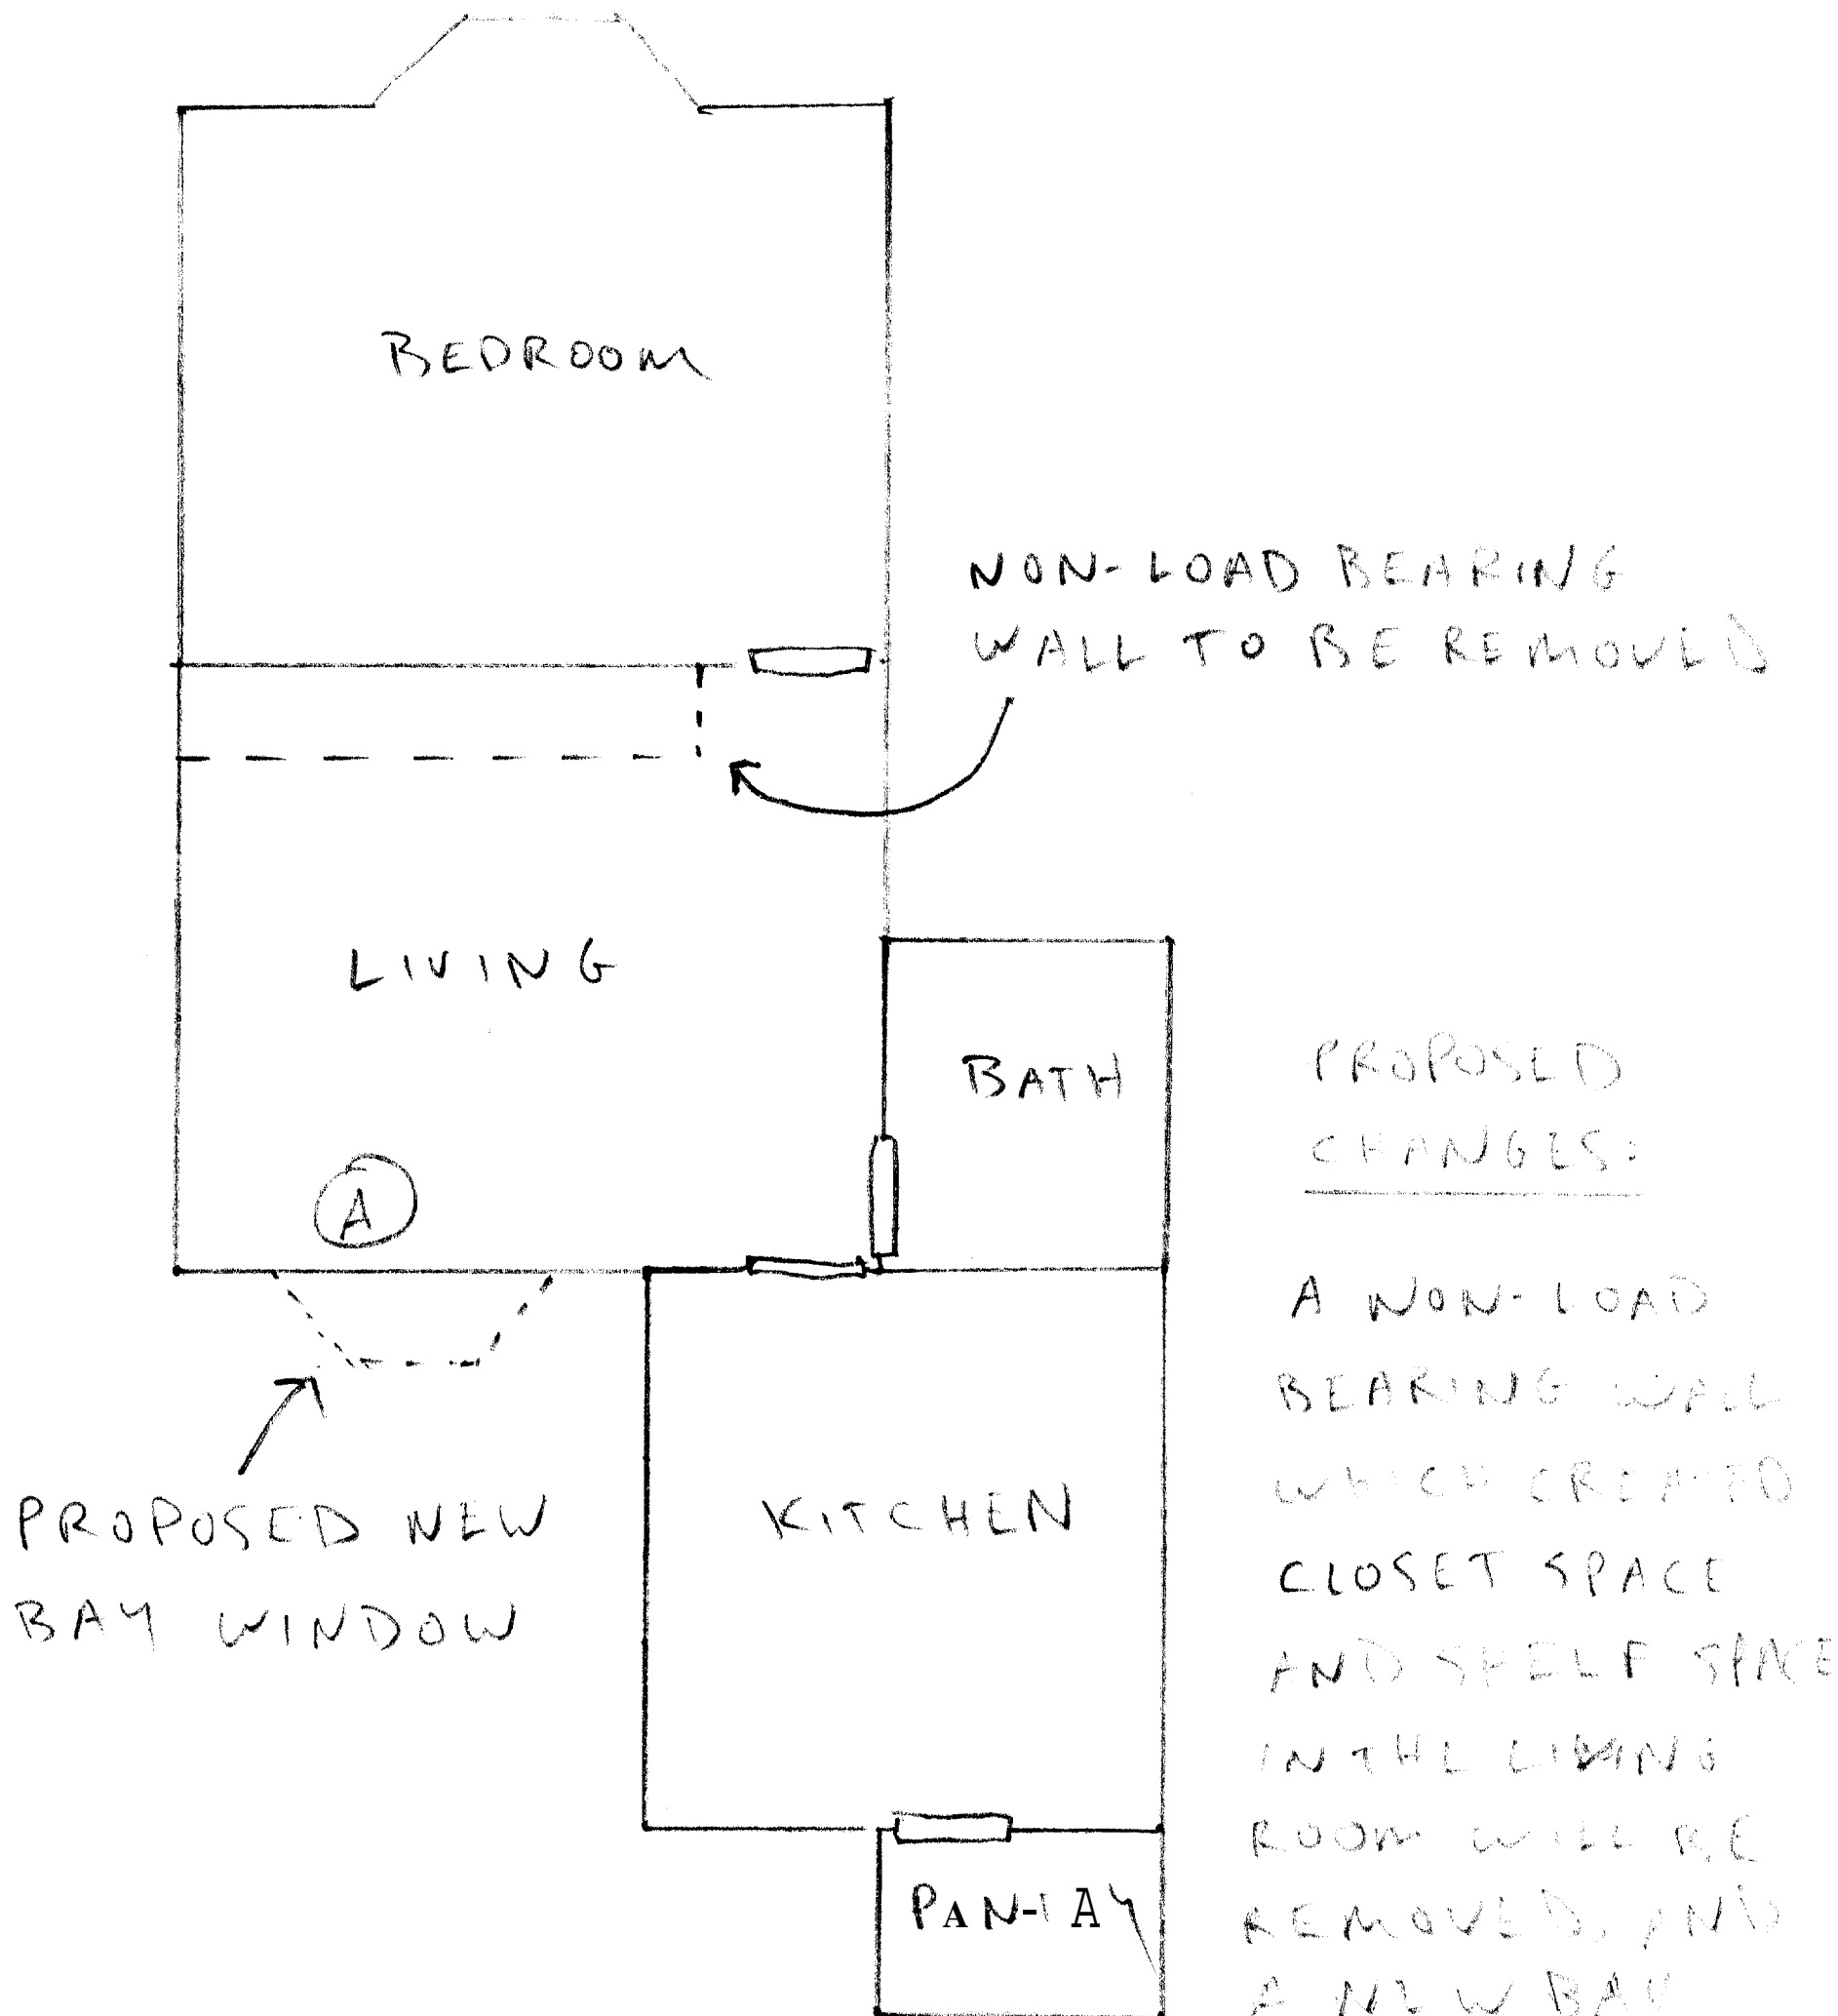 BEDROOM
NON-LOAD BEARING
WALL TO BE REMOVED
LIVING
BATH
A
PROPOSED NEW
BAY WINDOW
KITCHEN
PAN-TAY
PROPOSED
CHANGES:
A NON-LOAD
BEARING WALL
WHICH CREATED
CLOSET SPACE
AND SHELF SPACE
IN THE LIVING
ROOM WILL BE
REMOVED, AND
A NEW BAY